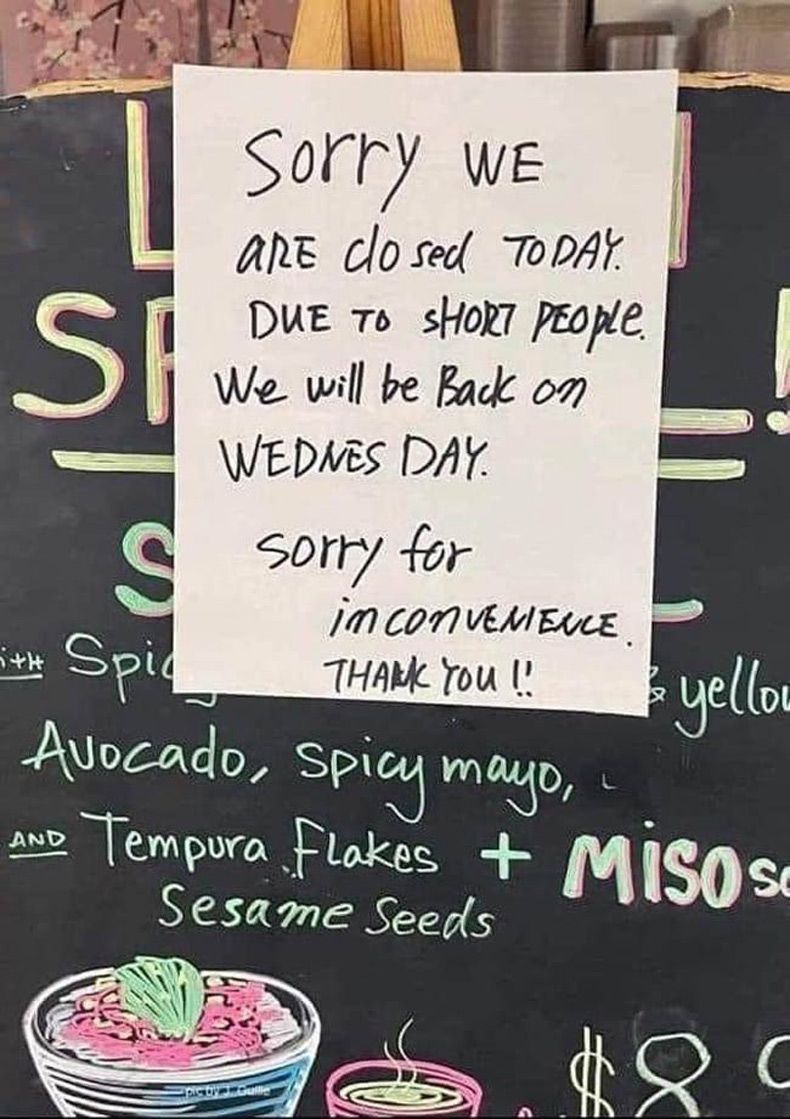 Sorry WE
ARE closed TODAY.
DUE TO SHORT PEOPLE.
We will be Back on
WEDNESDAY.
sorry for
inconVENIENCE.
THANK YOU !!
Avocado, spicy mayo,
AND Tempura Flakes + MISO
Sesame Seeds
$8
pic by J. Gullie